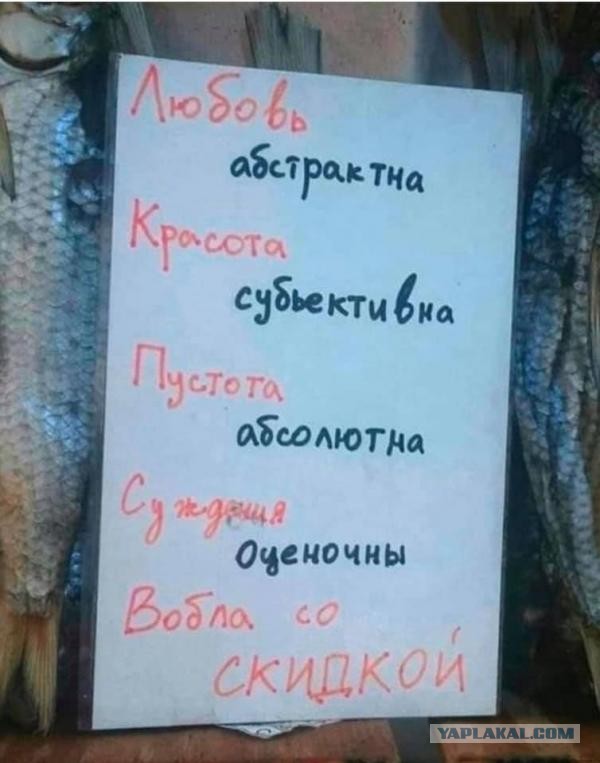 Любовь
абстрактна
Красота
субьективна
Пустота
абсолютна
Суждения
Оценочны
Вобла со
СКИДКОЙ
YAPLAKAL.COM